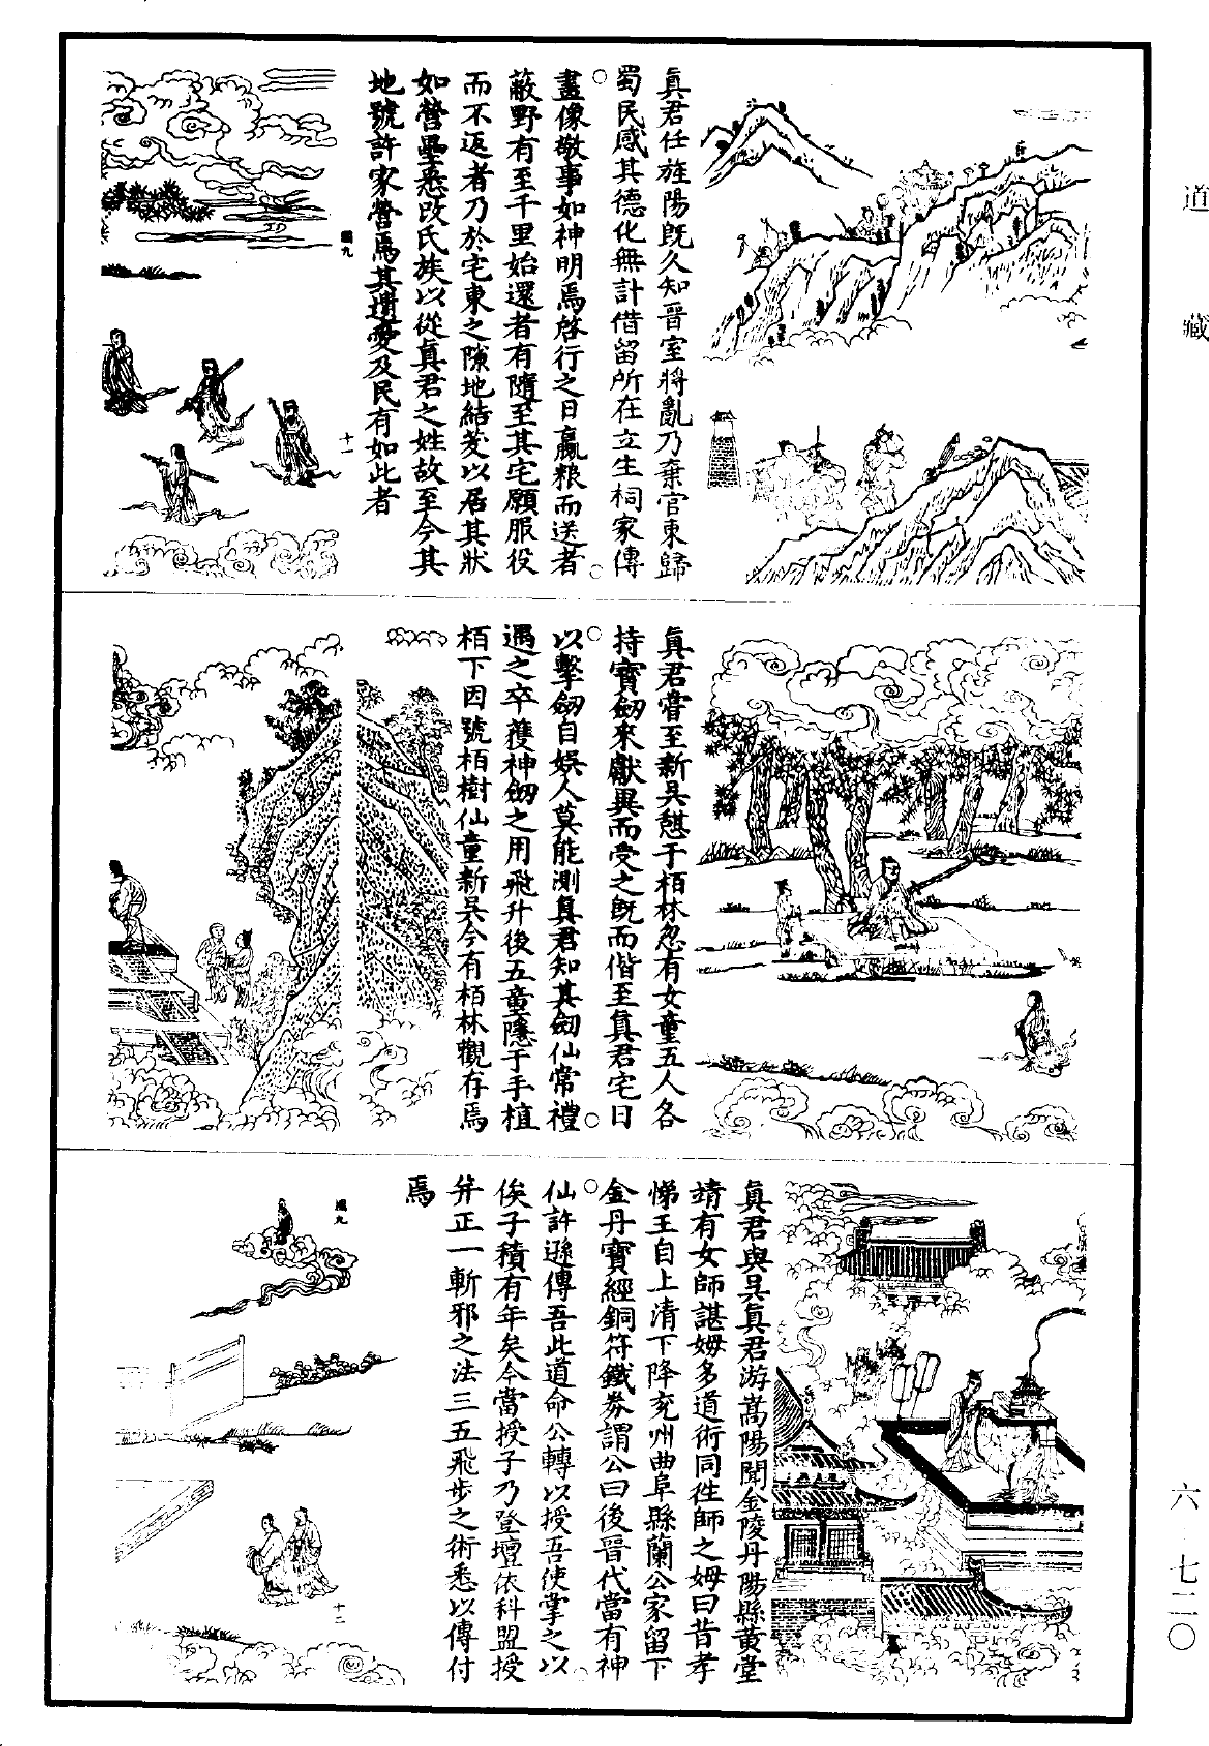 道藏
真君任旌陽既久知晉室將亂乃棄官東歸
蜀民感其德化無計借留所在立生祠家傳
畫像敬事如神明焉啓行之日贏粮而送者
蔽野有至千里始還者有隨至其宅願服役
而不返者乃於宅東之隙地結茭以居其狀
如營壘悉改氏族以從真君之姓故至今其
地號許家營焉其遺愛及民有如此者
圖九
十一
真君嘗至新吳憇于栢林忽有女童五人各
持寶劒來獻異而受之既而偕至真君宅日
以擊劒自娱人莫能測真君知其劒仙常禮
遇之卒獲神劒之用飛升後五童隱于手植
栢下因號栢樹仙童新吳今有栢林觀存焉
真君與吳真君游嵩陽聞金陵丹陽縣黃堂
靖有女師諶姆多道術同徃師之姆曰昔孝
悌王自上清下降兖州曲阜縣蘭公家留下
金丹寶經銅符鐵券謂公曰後晉代當有神
仙許遜傳吾此道命公轉以授吾使掌之以
俟子積有年矣今當授子乃登壇依科盟授
并正一斬邪之法三五飛步之術悉以傳付
焉
圖九
十二
六七二〇